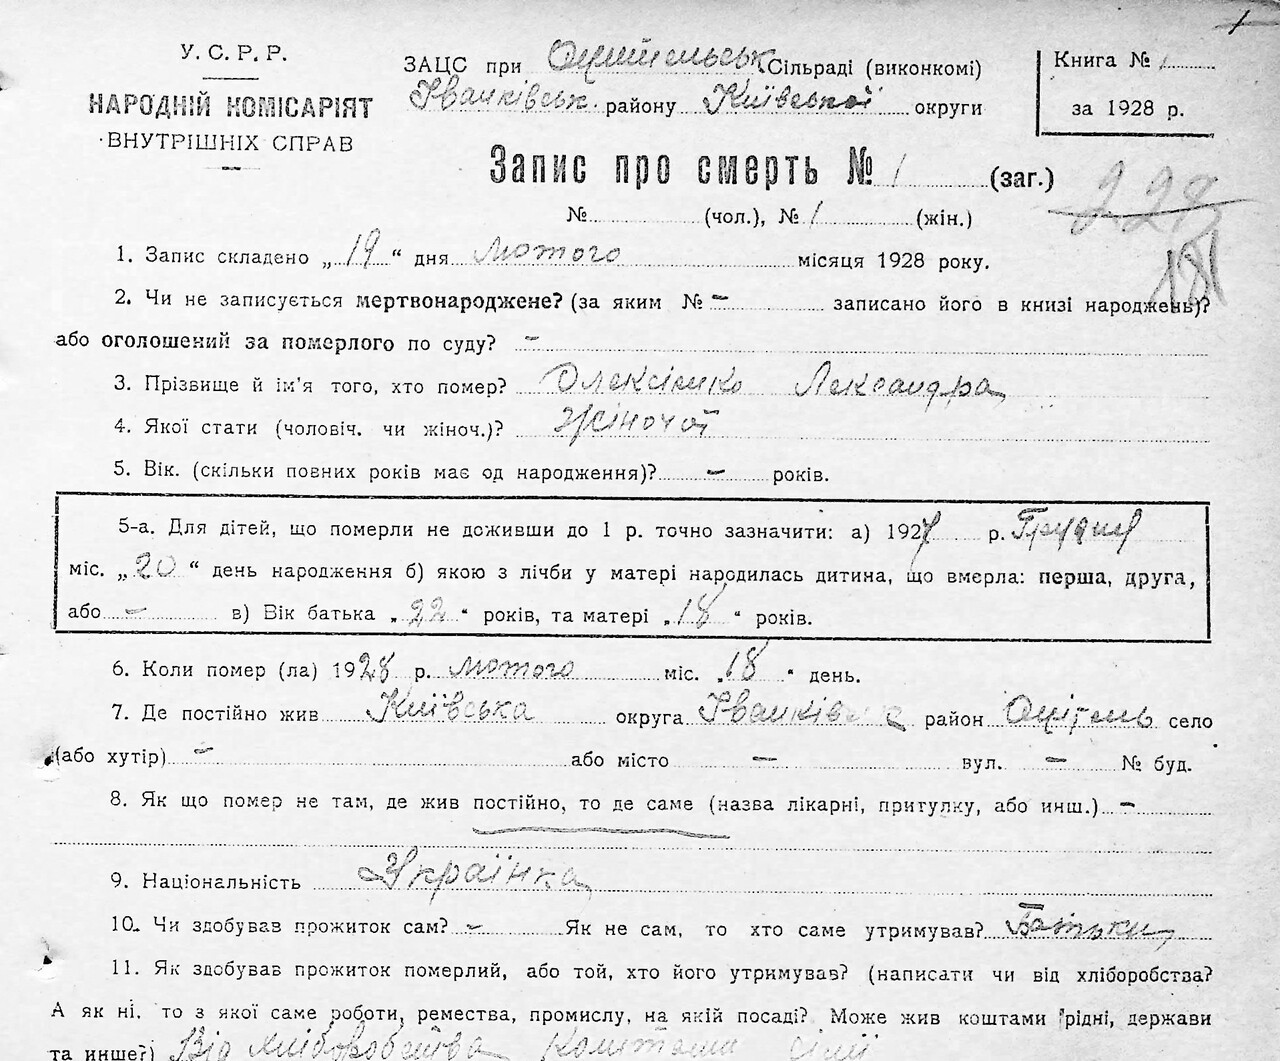 1
У.С.Р.Р.
НАРОДНІЙ КОМІСАРІЯТ
ВНУТРІШНІХ СПРАВ
ЗАЦС при Оцительськ Сільраді (виконкомі)
Іванківськ. району Київської округи
Книга № 1
за 1928 р.
Запис про смерть № 1 (заг.)
№ (чол.), № 1 (жін.)
228
181
1. Запис складено „19“ дня лютого місяця 1928 року.
2. Чи не записується мертвонароджене? (за яким № – записано його в книзі народжень)?
або оголошений за померлого по суду? –
3. Прізвище й ім'я того, хто помер? Олексієнко Лександра
4. Якої стати (чоловіч. чи жіноч.)? жіночої
5. Вік. (скільки повних років має од народження)? – років.
5-а. Для дітей, що померли не доживши до 1 р. точно зазначити: а) 1927 р. Грудня
міс. „20“ день народження б) якою з лічби у матері народилась дитина, що вмерла: перша, друга,
або – в) Вік батька „22“ років, та матері „18“ років.
6. Коли помер (ла) 1928 р. лютого міс. „18“ день.
7. Де постійно жив Київська округа Іванківськ район Оцітель село
(або хутір) – або місто – вул. – № буд.
8. Як що помер не там, де жив постійно, то де саме (назва лікарні, притулку, або инш.) –
9. Національність Українка
10. Чи здобував прожиток сам? – Як не сам, то хто саме утримував? Батьки
11. Як здобував прожиток померлий, або той, хто його утримував? (написати чи від хліборобства?
А як ні. то з якої саме роботи, ремества, промислу, на якій посаді? Може жив коштами рідні, держави
та инше?) Від хліборобства